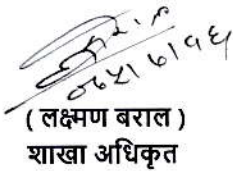 ( लक्ष्मण बराल )
शाखा अधिकृत